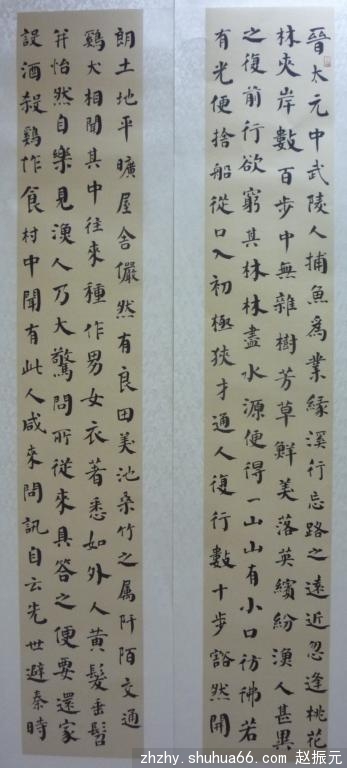 晉太元中武陵人捕魚爲業緣溪行忘路之遠近忽逢桃花
林夾岸數百步中無雜樹芳草鮮美落英繽紛漁人甚異
之復前行欲窮其林林盡水源便得一山山有小口彷彿若
有光便捨船從口入初極狹才通人復行數十步豁然開
朗土地平曠屋舍儼然有良田美池桑竹之属阡陌交通
鷄犬相聞其中往來種作男女衣著悉如外人黃髮垂髫
并怡然自樂見漁人乃大驚問所從來具答之便要還家
設酒殺鷄作食村中聞有此人咸來問訊自云先世避秦時
zhzhy.shuhua66.com 赵振元